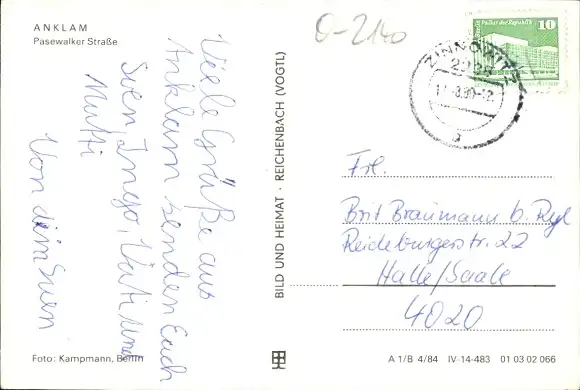 ANKLAM
Pasewalker Straße
Viele Grüße aus
Anklam senden Euch
Sven, Ingo, Vati und
Mutti
Von dein Sven
Foto: Kampmann, Berlin
BILD UND HEIMAT · REICHENBACH (VOGTL)
O-2140
Palast der Republik
10
ZINNOWITZ
2238
-12
a
Frl.
Brit Braumann b. Ryl
Reideburgerstr. 22
Halle/Saale
4020
A 1/B 4/84 IV-14-483 01 03 02 066